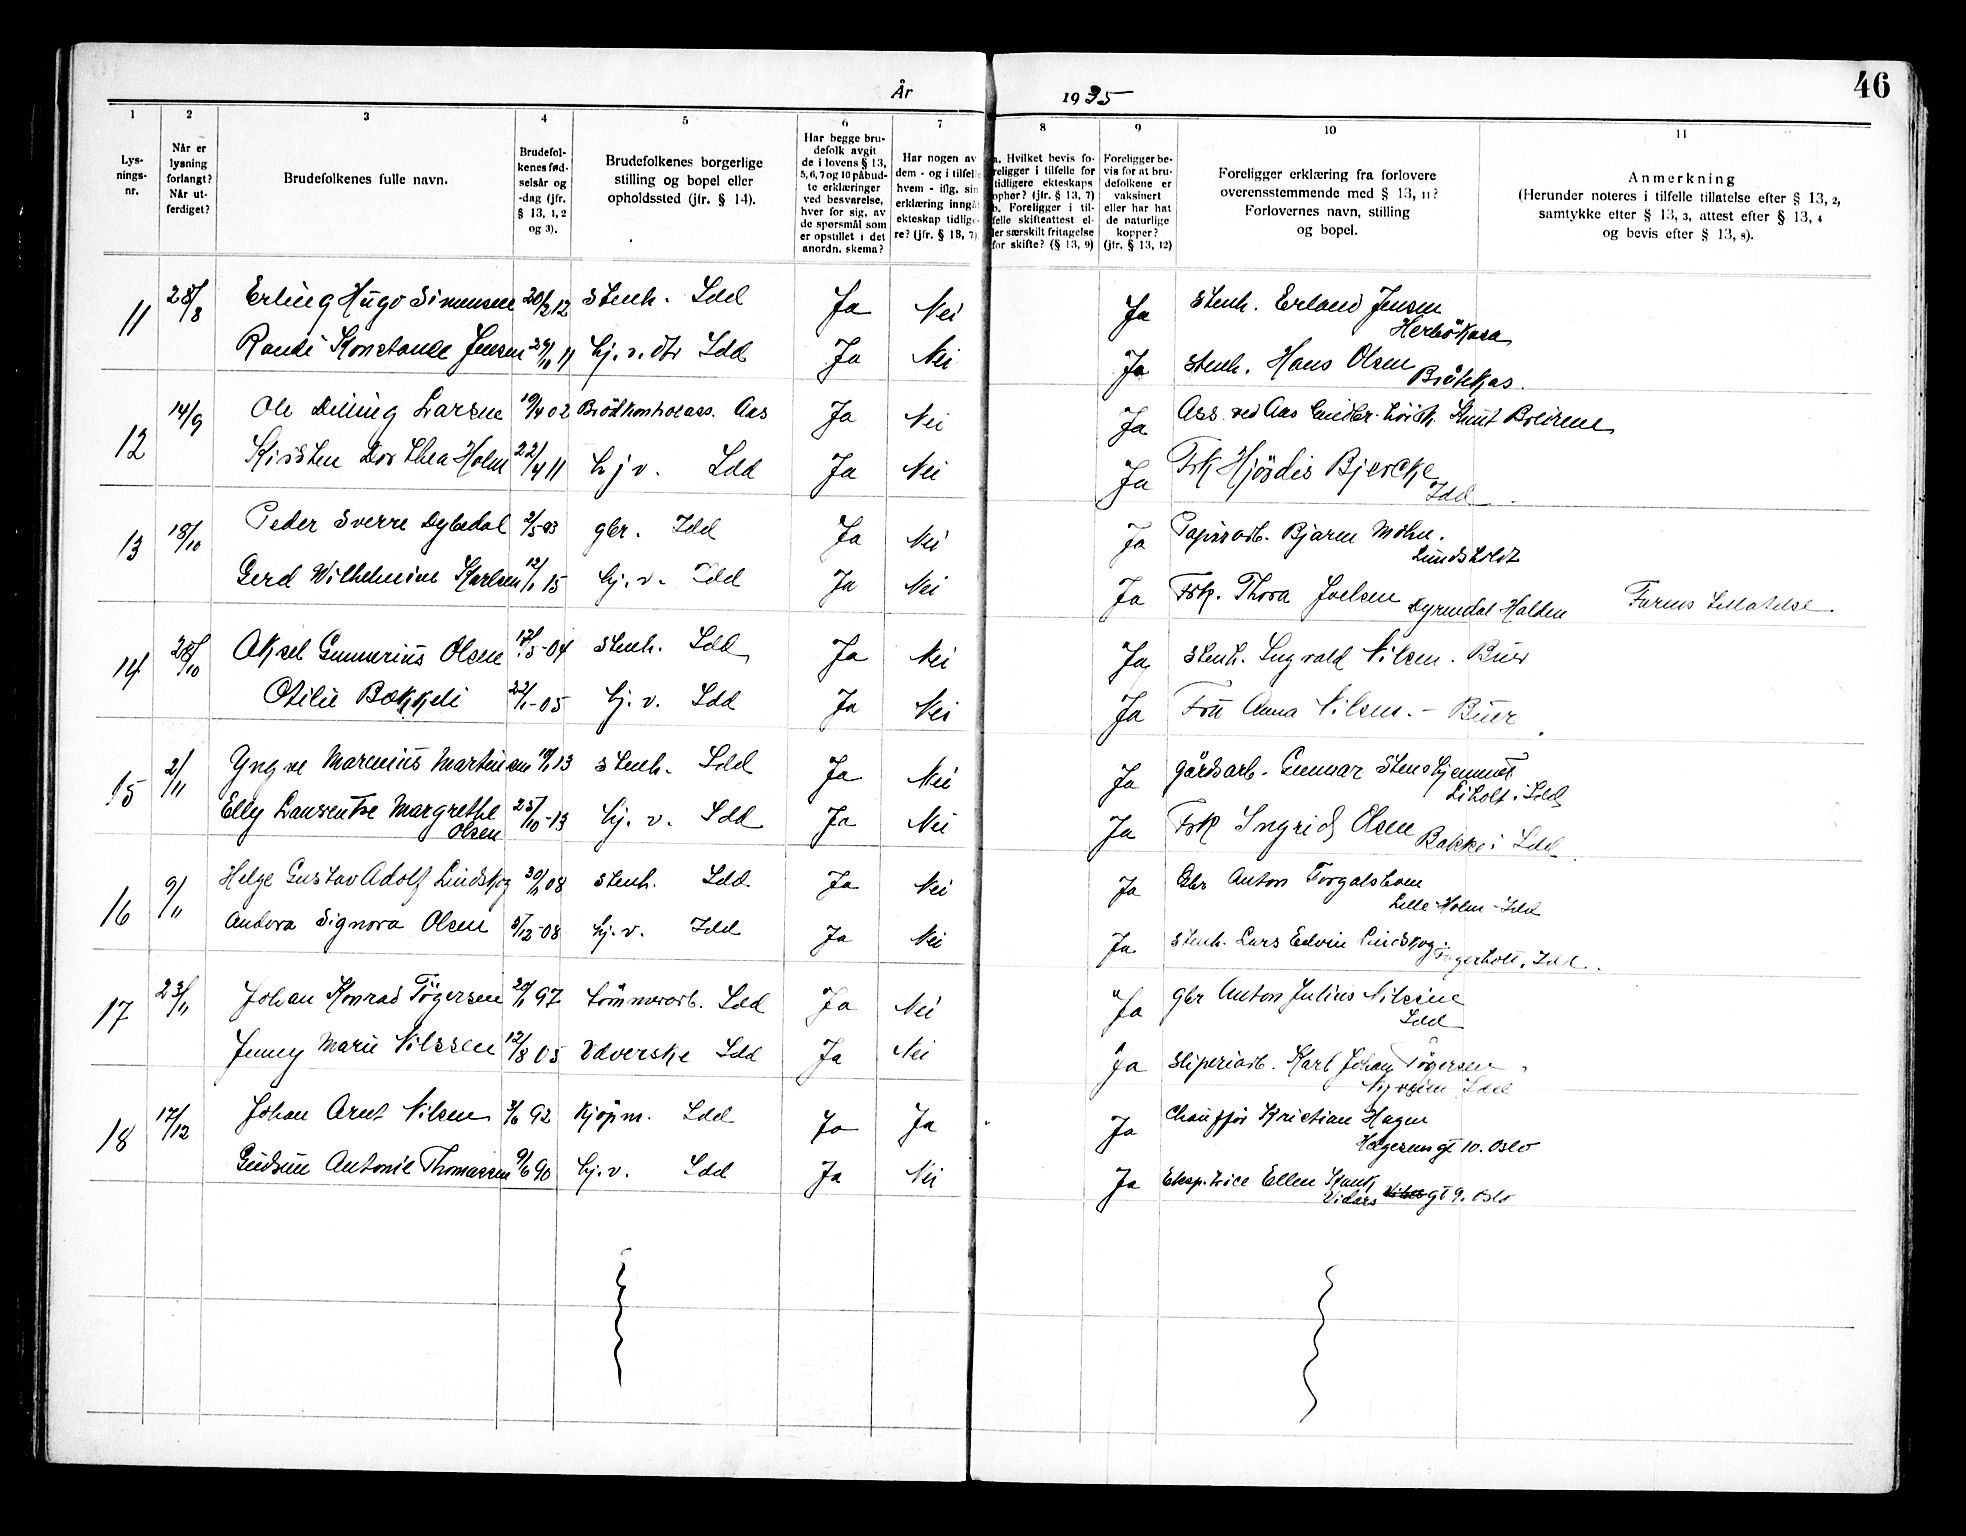 46
År 1935
1 2 3 4 5 6 7 8 9 10 11
Lys-
nings-
nr.
Når er
lysning
forlangt?
Når ut-
ferdiget?
Brudefolkenes fulle navn.
Brudefol-
kenes fød-
selsår og
-dag (jfr.
§ 13, 1, 2
og 3).
Brudefolkenes borgerlige
stilling og bopel eller
opholdssted (jfr. § 14).
Har begge bru-
defolk avgit
de i lovens § 13,
5, 6, 7 og 10 påbud-
te erklæringer
ved besvarelse,
hver for sig, av
de spørsmål som
er opstillet i det
anordn. skema?
Har nogen av
dem - og i tilfelle
hvem - iflg. sin
erklæring inngå
ekteskap tidlige-
re? (jfr. § 13, 7)
a. Hvilket bevis fo-
religger i tilfelle for
tidligere ekteskaps
ophør? (jfr. § 13, 7)
b. Foreligger i til-
felle skifteattest el-
ler særskilt fritagelse
for skifte? (§ 13, 9)
Foreligger be-
vis for at bru-
defolkene er
vaksinert
eller har hat
de naturlige
kopper?
(jfr. § 13, 12)
Foreligger erklæring fra forlovere
overensstemmende med § 13, 11?
Forlovernes navn, stilling
og bopel.
Anmerkning
(Herunder noteres i tilfelle tillatelse efter § 13, 2,
samtykke efter § 13, 3, attest efter § 13, 4
og bevis efter § 13, 8).
11 28/8 Erling Hugo Simensen 20/2 12 Stenh. Idd Ja Nei Ja Stenh. Erland Jensen
Herbökasa
Randi Konstanse Jensen 29/10 11 hj. v. dtr Idd Ja Nei Ja Stenh. Hans Olsen
12 14/9 Ole Dilling Larsen 19/4 02 ass. Aas Ja Nei Ja Ass. ved Aas Knut Breirene
Kirsten Dorthea Holm 22/4 11 hj v. Idd Ja Nei Ja Frk Hjördis Bjercke
Idd
13 18/10 Peder Sverre Dybedal 2/5-93 gbr. Idd Ja Nei Ja Papirarb. Bjarne Möhn.
Lundsholdt
Gerd Wilhelmine Karlsen 12/1 15 hj. v. Idd Ja Nei Ja Frk. Thora Joelsen Dyrendal Halden Farens tillatelse
14 28/10 Aksel Gunnerius Olsen 17/5-04 Stenh. Idd Ja Nei Ja Stenh. Ingvald Nilsen. Buer
Otilie Bakkeli 22/1-05 hj. v. Idd Ja Nei Ja Fru Anna Nilsen. - Buer
15 2/11 Yngve Marenius Martinsen 18/1 13 Stenh. Idd Ja Nei Ja Gårdsarb. Gunnar
Liholt i Idd
Elly Laurentse Margrethe
Olsen 25/10-13 hj. v. Idd Ja Nei Ja Frk Ingrid Olsen Bakke i Idd
16 9/11 Helge Gustav Adolf Lindskog 30/11 08 Stenh. Idd Ja Nei Ja Gbr Anton Torgalsbøen
Lille Holm - Idd
Andora Signora Olsen 5/12-08 hj. v. Idd Ja Nei Ja Stenh. Lars Edvin Lindskog. Fagerholt, Idd.
17 23/11 Johan Konrad Tögersen 20/1 97 Tömmerarb. Idd Ja Nei Ja gbr Anton Julius Nilsen
Idd
Jenny Marie Nilssen 12/8 05 Væverske Idd Ja Nei Ja Sliperiarb. Karl Johan Tögersen
Idd
18 17/12 Johan Arnt Nilsen 3/6 92 Kjøpm. Idd Ja Ja Ja Chauffør Kristian Hagen
Helgesensgt 10. Oslo
Gudrun Antonie Thomassen 9/6 90 hj. v. Idd Ja Nei Ja Eksp.trice Ellen Skunk
Vidars gt 9. Oslo